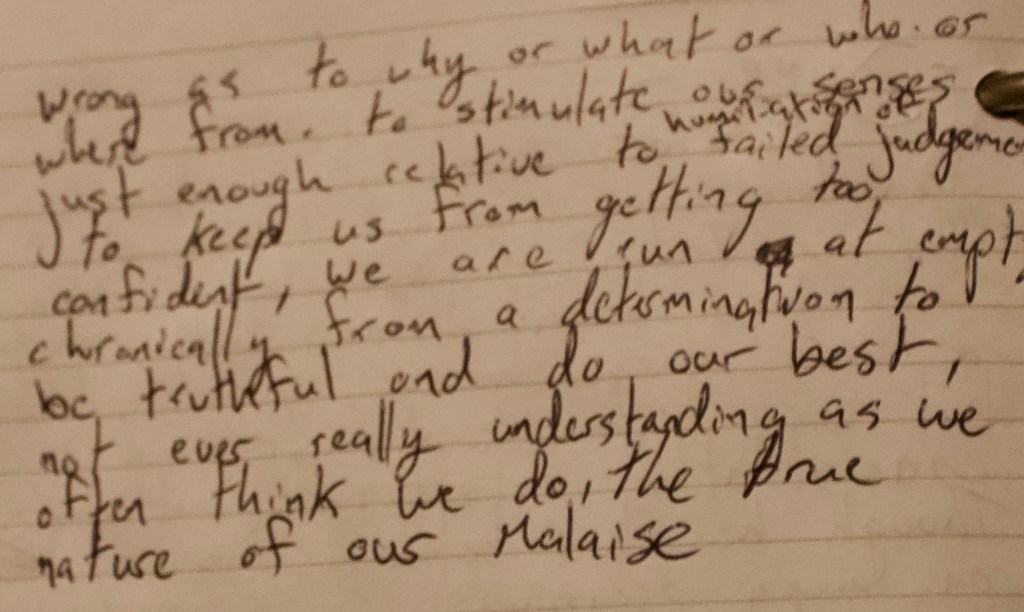 wrong as to why or what or who. or
where from. to stimulate our senses
humiliation of
just enough relative to failed judgeme
to keep us from getting too
confident, we are run at empty
chronically from a determination to
be truthful and do our best,
not ever really understanding as we
often think we do, the true
nature of our Malaise